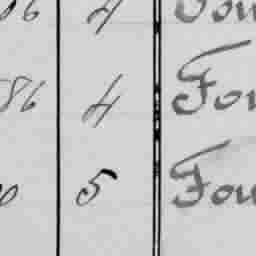 06 4 Fou
86 4 Fou
0 5 Fou